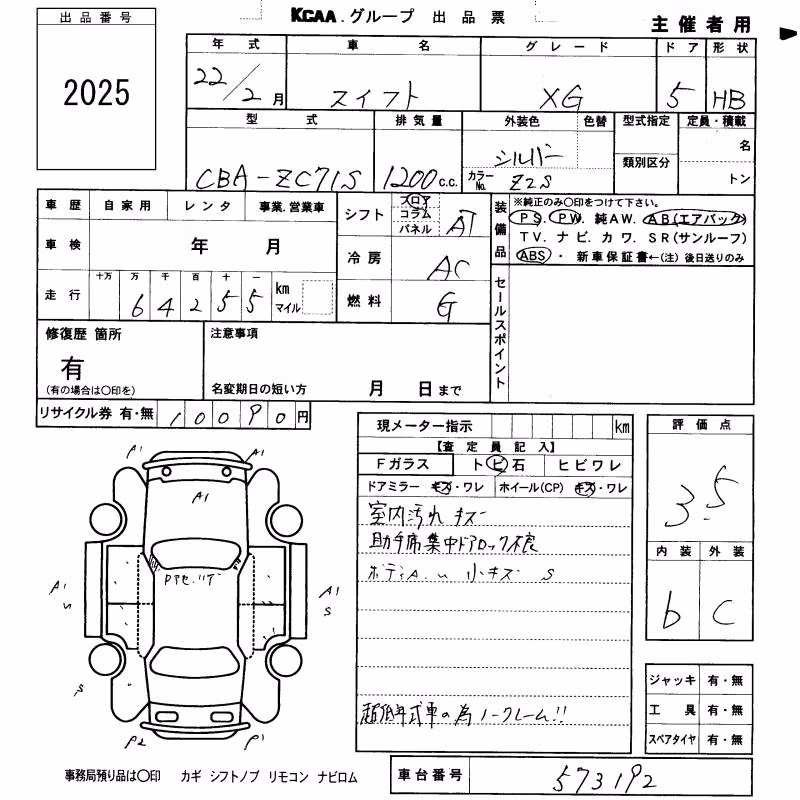 KCAA.グループ 出品票
主催者用
出品番号
2025
年式 車名 グレード ドア 形状
22/2月 スイフト XG 5 HB
型式 排気量 外装色 色替 型式指定 定員・積載
CBA-ZC71S 1200c.c. シルバー 名
カラーNo. Z2S 類別区分 トン
車歴 自家用 レンタ 事業.営業車
車検 年 月
走行 十万 万 千 百 十 一
6 4 2 5 5 km マイル
シフト フロア コラム パネル AT
冷房 AC
燃料 G
装備品
※純正のみ〇印をつけて下さい。
PS. PW. 純AW. AB(エアバック)
TV. ナビ. カワ. SR(サンルーフ)
ABS ・ 新車保証書←(注) 後日送りのみ
セールスポイント
修復歴 箇所
有
(有の場合は〇印を)
注意事項
名変期日の短い方 月 日まで
リサイクル券 有・無 10090円
現メーター指示 km
【査定員記入】
Fガラス トビ石 ヒビワレ
ドアミラー キズ・ワレ ホイール(CP) キズ・ワレ
室内汚れ キズ
助手席集中ドアロック不良
ボディA.u 小キズ S
超低年式車の為ノークレーム!!
評価点
3.5
内装 外装
b C
ジャッキ 有・無
工具 有・無
スペアタイヤ 有・無
A1 A1
A1
A1 u
A1 S
S
P2 P1
事務局預り品は〇印 カギ シフトノブ リモコン ナビロム
車台番号 573192